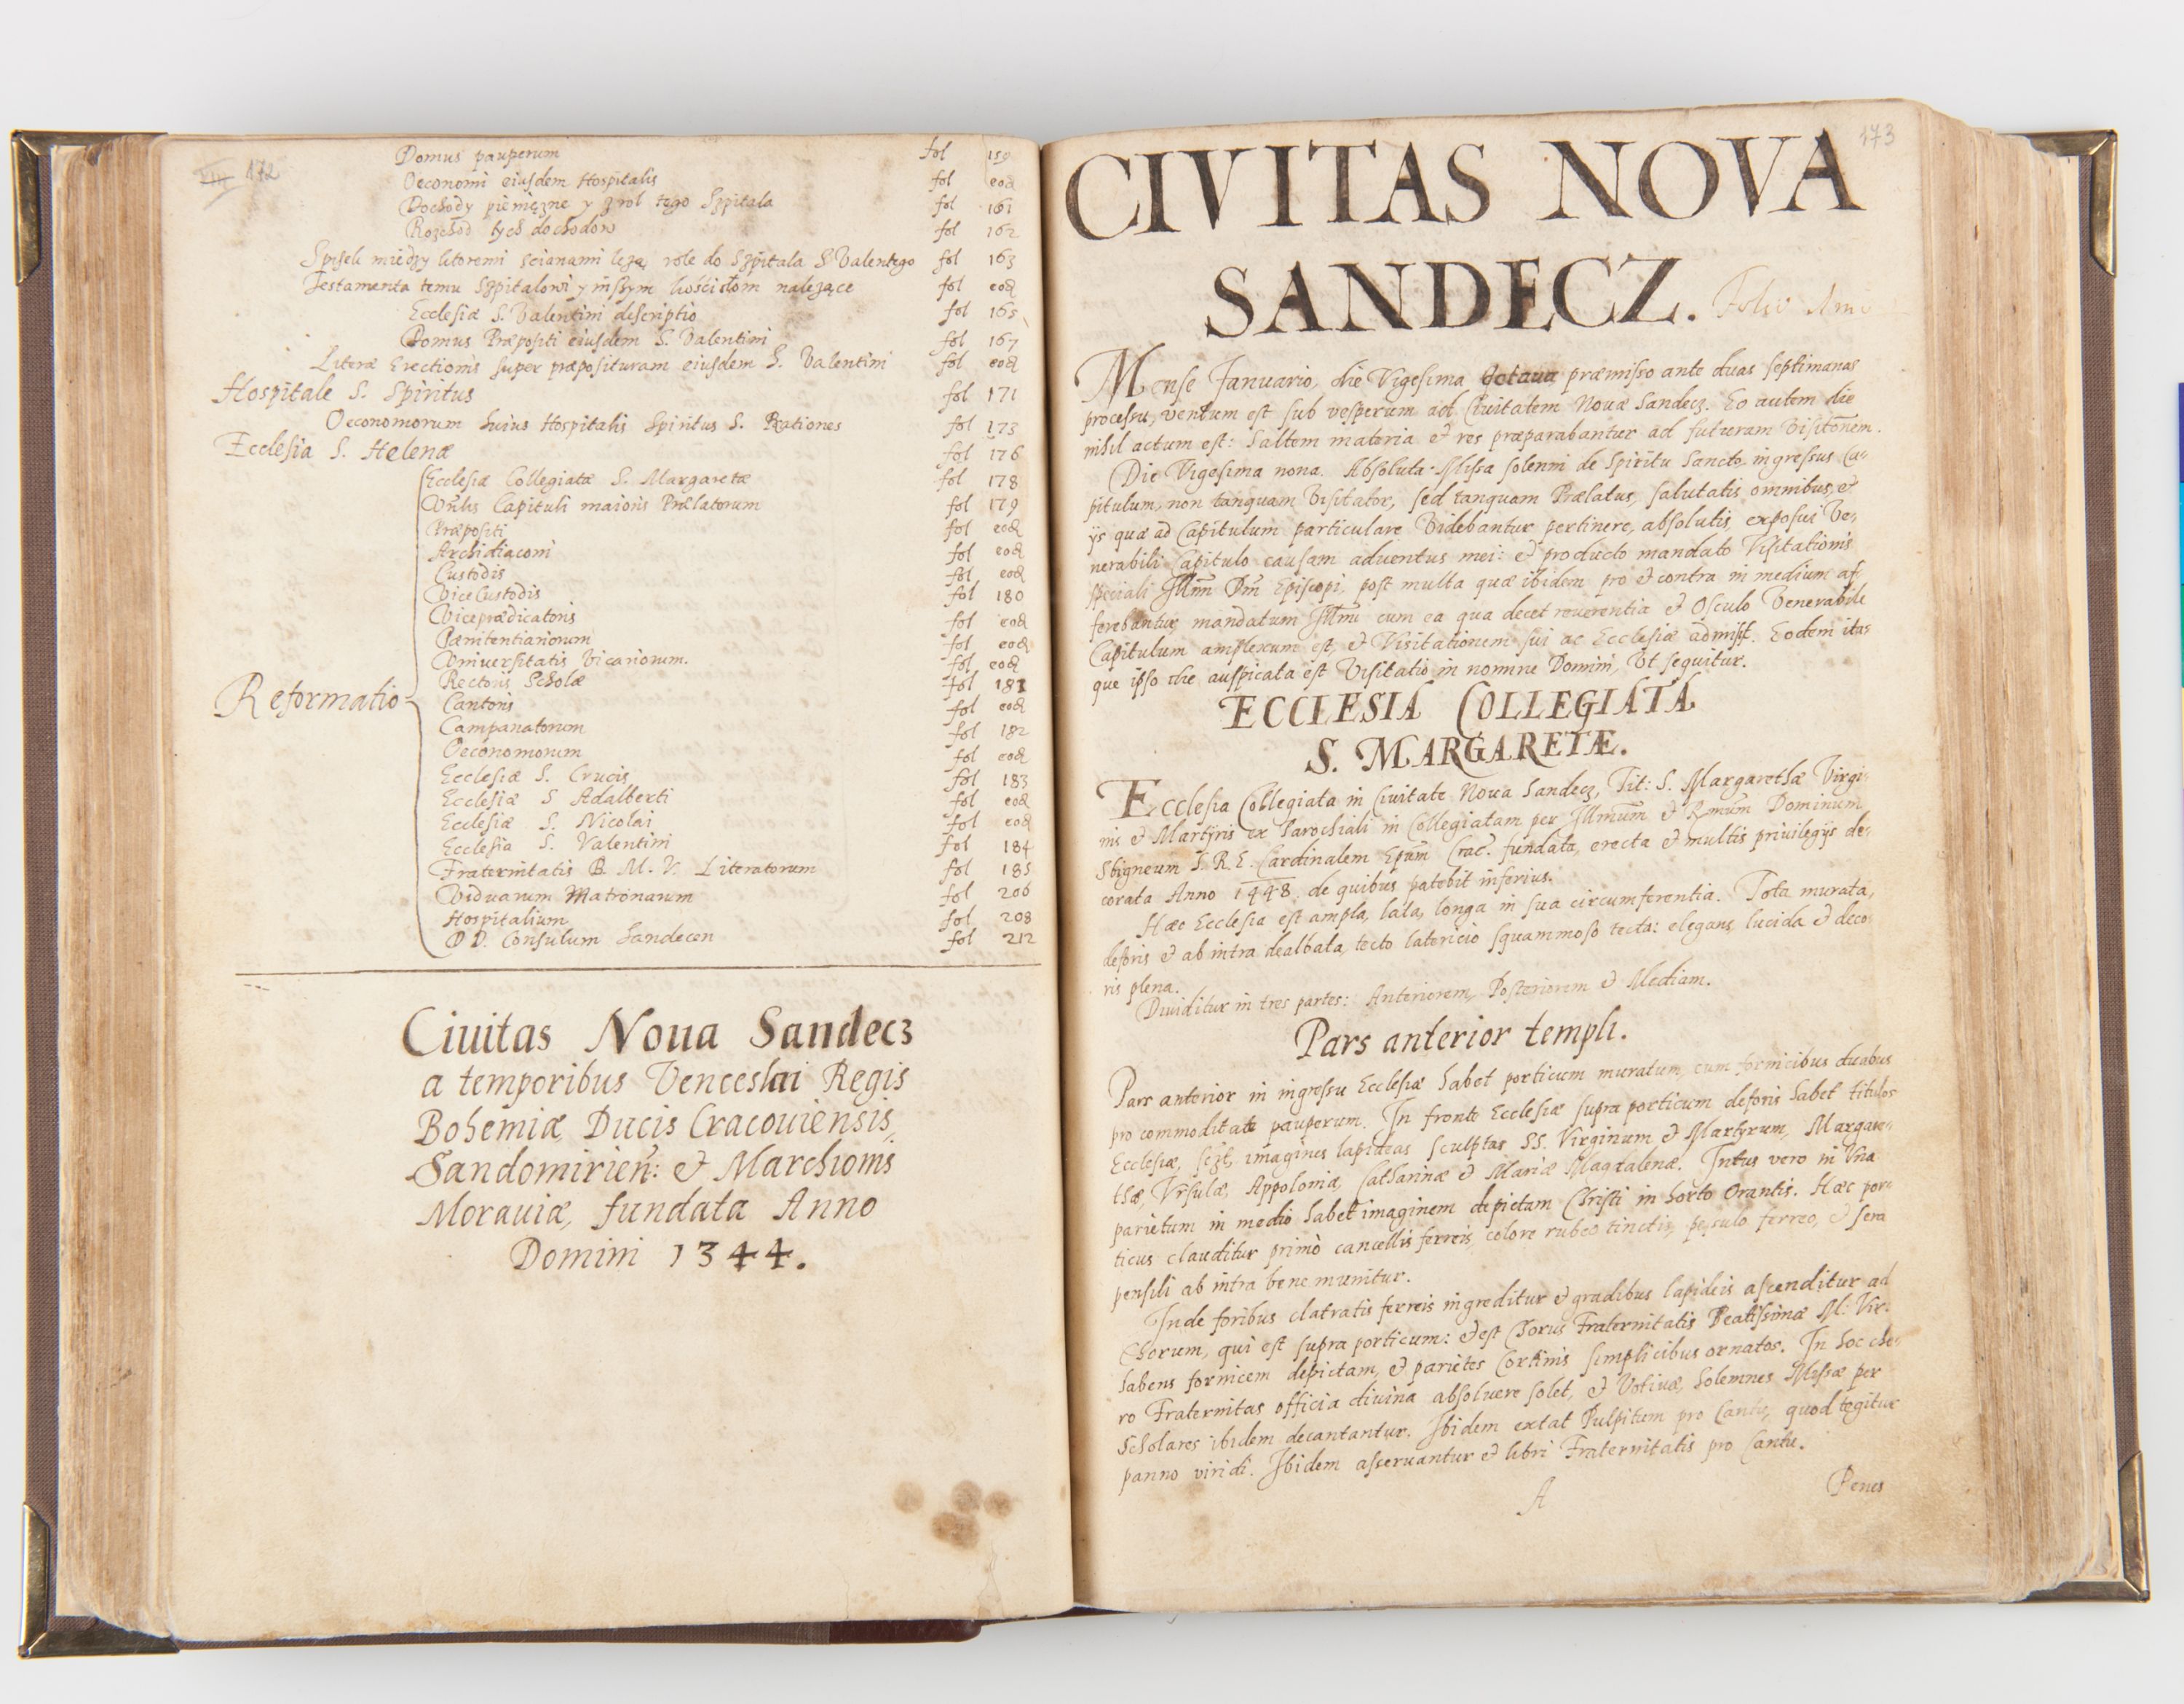 172
Domus pauperum fol 159
Oeconomi eiusdem Hospitalis fol eod
Dochody pieniężne y z rol tego Szpitala fol 161
Rozchod tych dochodow fol 162
Spisek między ktoremi scianami leżą role do Szpitala S. Valentego fol 163
Testamenta temu Szpitalowi y inszym kościołom należące fol eod
Ecclesiæ S. Valentini descriptio fol 165
Domus Præpositi eiusdem S. Valentini fol 167
Literæ Erectionis super præposituram eiusdem S. Valentini fol eod
Hospitale S. Spiritus fol 171
Oeconomorum huius Hospitalis Spiritus S. Rationes fol 173
Ecclesia S. Helenæ fol 176
Ecclesiæ Collegiatæ S. Margaretæ fol 178
Capituli maioris Prælatorum fol 179
Præpositi fol eod
Archidiaconi fol eod
Custodis fol eod
ViceCustodis fol 180
Viceprædicatoris fol eod
Pænitentiariorum fol eod
Vniuersitatis Vicariorum. fol eod
Rectoris Scholæ fol 181
Reformatio
Cantoris fol eod
Campanatorum fol 182
Oeconomorum fol eod
Ecclesiæ S. Crucis fol 183
Ecclesiæ S Adalberti fol eod
Ecclesiæ S. Nicolai fol eod
Ecclesia S. Valentini fol 184
Fraternitatis B. M. V. Literatorum fol 185
Viduarum Matronarum fol 206
Hospitalium fol 208
DD. Consulum Sandecen fol 212
Ciuitas Noua Sandecz
a temporibus Venceslai Regis
Bohemiæ, Ducis Cracouiensis,
Sandomirień: & Marchionis
Morauiæ, fundata Anno
Domini 1344.
173
CIVITAS NOVA
SANDECZ.
Mense Januario, die Vigesima Octaua præmisso ante duas septimanas
processu, ventum est sub vesperum ad Ciuitatem Nouæ Sandecz. Eo autem die
nihil actum est: saltem materia & res præparabantur ad futuram Visitōnem.
Die Vigesima nona. Absoluta Missa solenni de Spiritu Sancto, ingressus Ca-
pitulum, non tanquam Visitator, sed tanquam Prælatus, salutatis omnibus, &
ijs quæ ad Capitulum particulare Videbantur pertinere, absolutis, exposui Ve-
nerabili Capitulo causam aduentus mei: & producto mandato Visitationis
speciali Illm̄i Dn̄i Episcopi, post multa quæ ibidem pro & contra in medium af-
ferebantur, mandatum Illm̄i cum ea qua decet reuerentia & Osculo Venerabile
Capitulum amplexum est, & Visitationem sui ac Ecclesiæ admisit. Eodem ita-
que ipso die auspicata est Visitatio in nomine Domini, Vt sequitur.
ECCLESIA COLLEGIATA
S. MARGARETÆ.
Ecclesia Collegiata in Ciuitate Noua Sandecz, Tit: S. Margarethæ Virgi-
nis & Martyris ex Parochiali in Collegiatam per Illmūm & Rmūm Dominum
Sbigneum S. R. E. Cardinalem Epūm Crac. fundata, erecta & multis priuilegijs de-
corata Anno 1448. de quibus patebit inferius.
Hæc Ecclesia est ampla, lata, longa in sua circumferentia. Tota murata,
deforis & ab intra dealbata, tecto latericio squammoso tecta: elegans, lucida & deco-
ris plena.
Diuiditur in tres partes: Anteriorem, Posteriorem & Mediam.
Pars anterior templi.
Pars anterior in ingressu Ecclesiæ habet porticum muratum, cum fornicibus duabus
pro commoditate pauperum. In fronte Ecclesiæ supra porticum deforis habet titulos
Ecclesiæ, imagines lapideas sculptas SS. Virginum & Martyrum, Margare-
thæ, Vrsulæ, Appoloniæ, Catharinæ & Mariæ Magdalenæ. Intus vero in Vna
parietum in medio habet imaginem depictam Christi in horto Orantis. Hæc por-
ticus clauditur primò cancellis ferreis, colore rubeo tinctis, pessulo ferreo, & sera
pensili ab intra bene munitur.
Inde foribus clatratis ferreis ingreditur & gradibus lapideis ascenditur ad
Chorum, qui est supra porticum: & est Chorus Fraternitatis Beatissimæ M: Vir:
habens fornicem depictam, & parietes Cortinis simplicibus ornatos. In hoc cho-
ro Fraternitas officia diuina absoluere solet, & Votiuæ, Solemnes Missæ per
Scholares ibidem decantantur. Ibidem extat Pulpitum pro Cantu, quod tegitur
panno viridi. Ibidem asseruantur & libri Fraternitatis pro Cantu.
A
Penes